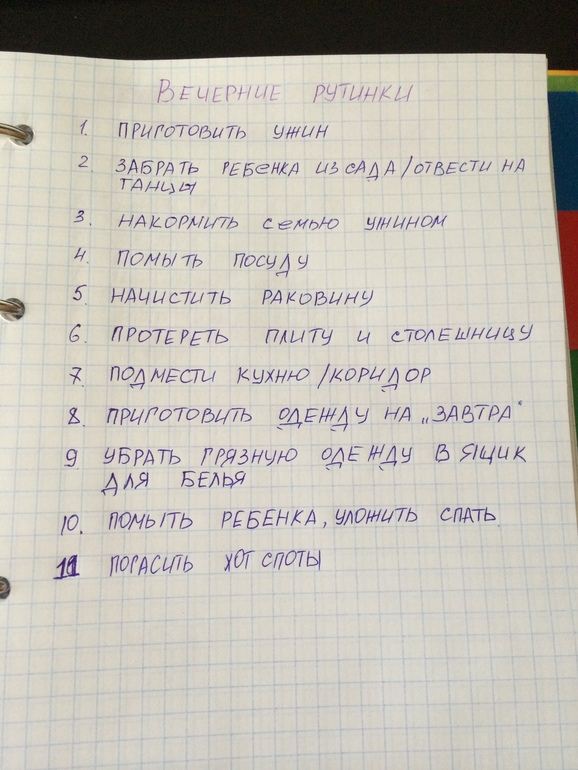 ВЕЧЕРНИЕ РУТИНКИ
1. ПРИГОТОВИТЬ УЖИН
2. ЗАБРАТЬ РЕБеНКА ИЗ САДА/ОТВЕСТИ НА
ТАНЦЫ
3. НАКОРМИТЬ СеМЬЮ УЖИНОМ
4. ПОМЫТЬ ПОСУДУ
5. НАЧИСТИТЬ РАКОВИНУ
6. ПРОТЕРЕТЬ ПЛИТУ И СТОЛЕШНИЦУ
7. ПОДМЕСТИ КУХНЮ/КОРИДОР
8. ПРИГОТОВИТЬ ОДЕЖДУ НА „ЗАВТРА"
9. УБРАТЬ ГРЯЗНУЮ ОДЕЖДУ В ЯЩИК
ДЛЯ БЕЛЬЯ
10. ПОМЫТЬ РЕБЕНКА, УЛОЖИТЬ СПАТЬ
11 ПОГАСИТЬ ХОТ СПОТЫ